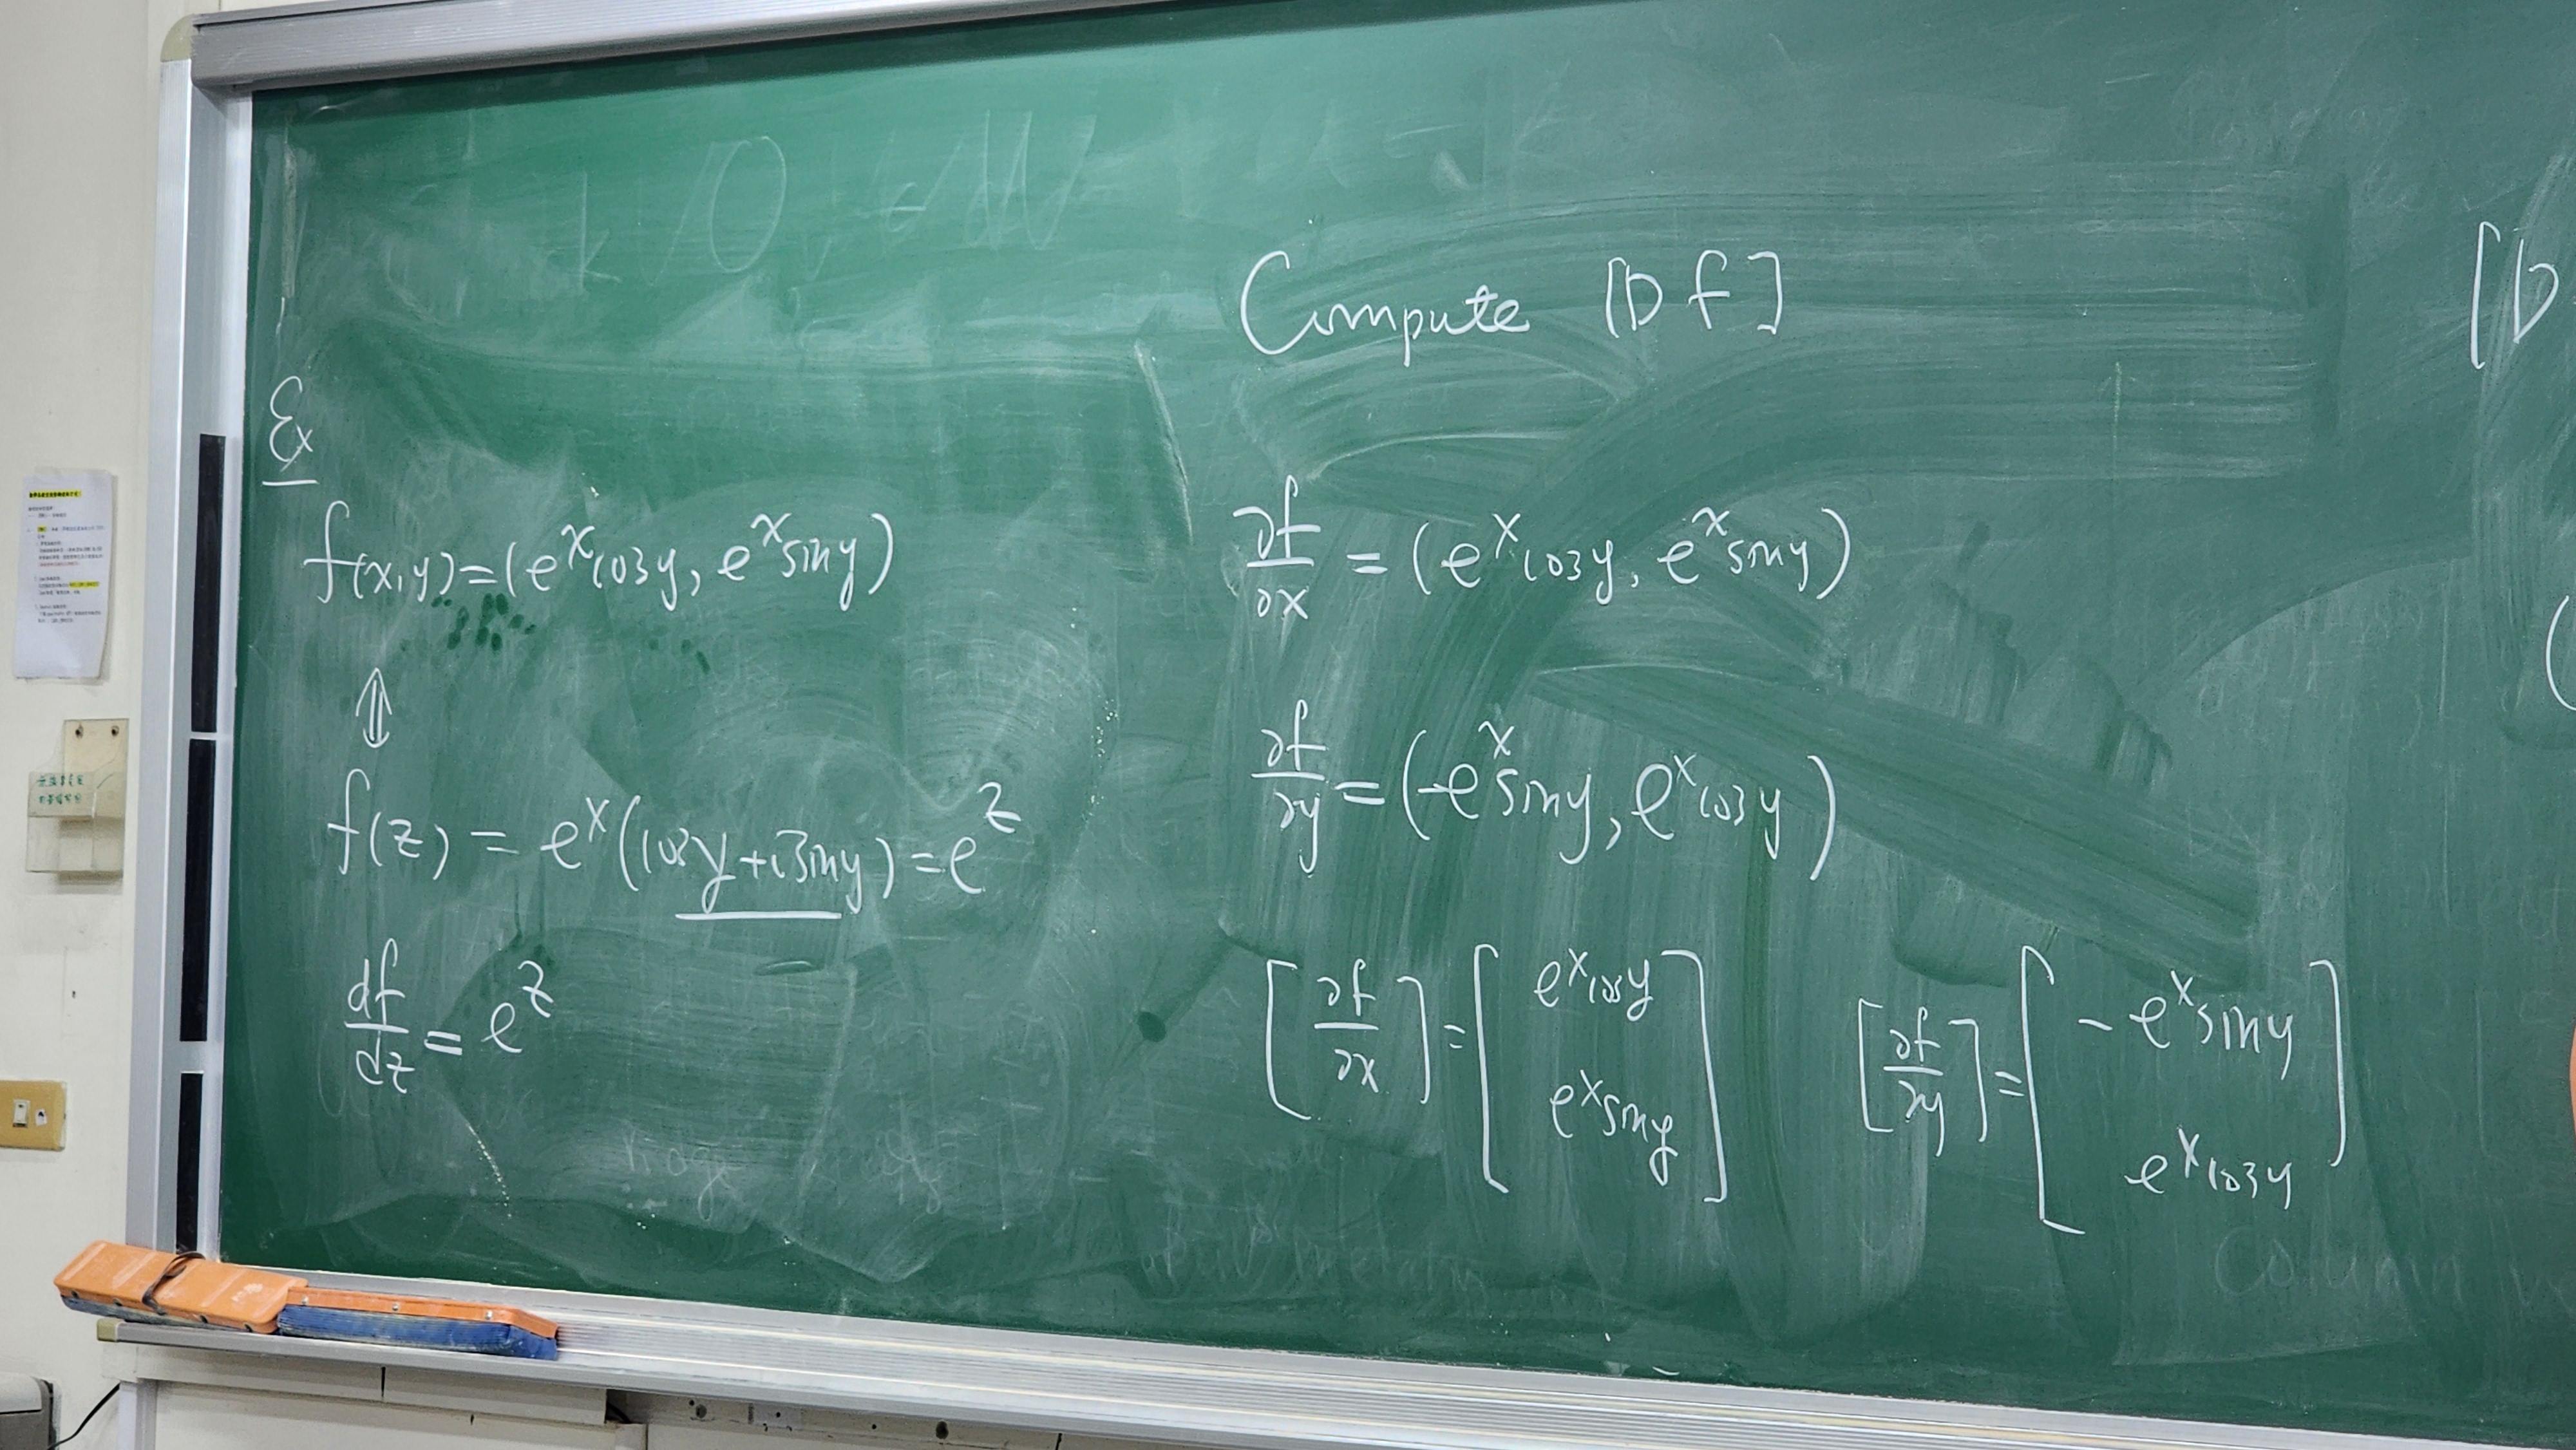 Ex
f(x,y)=(e^x cos y, e^x sin y)
⇕
f(z) = e^x(cos y + i sin y) = e^z
df/dz = e^z
Compute [Df]
∂f/∂x = (e^x cos y, e^x sin y)
∂f/∂y = (-e^x sin y, e^x cos y)
[∂f/∂x] = [e^x cos y
e^x sin y]
[∂f/∂y] = [-e^x sin y
e^x cos y]
[D
(